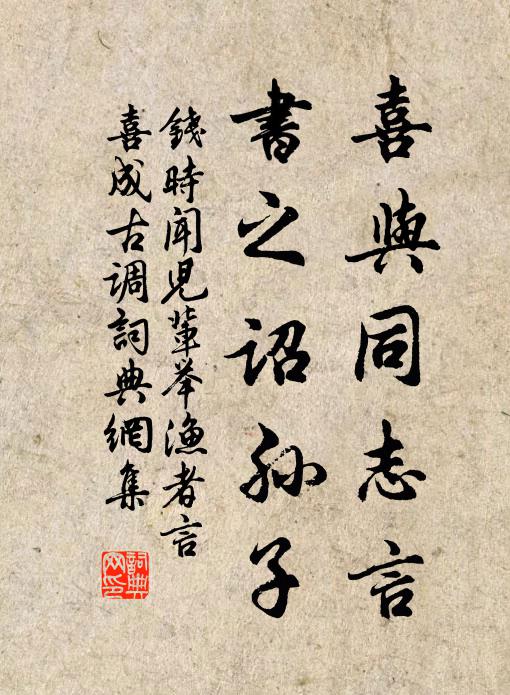 喜與同志言
書之詔孫子
錢時聞兒輩举漁者言
喜成古调詞典網集
詞典网印